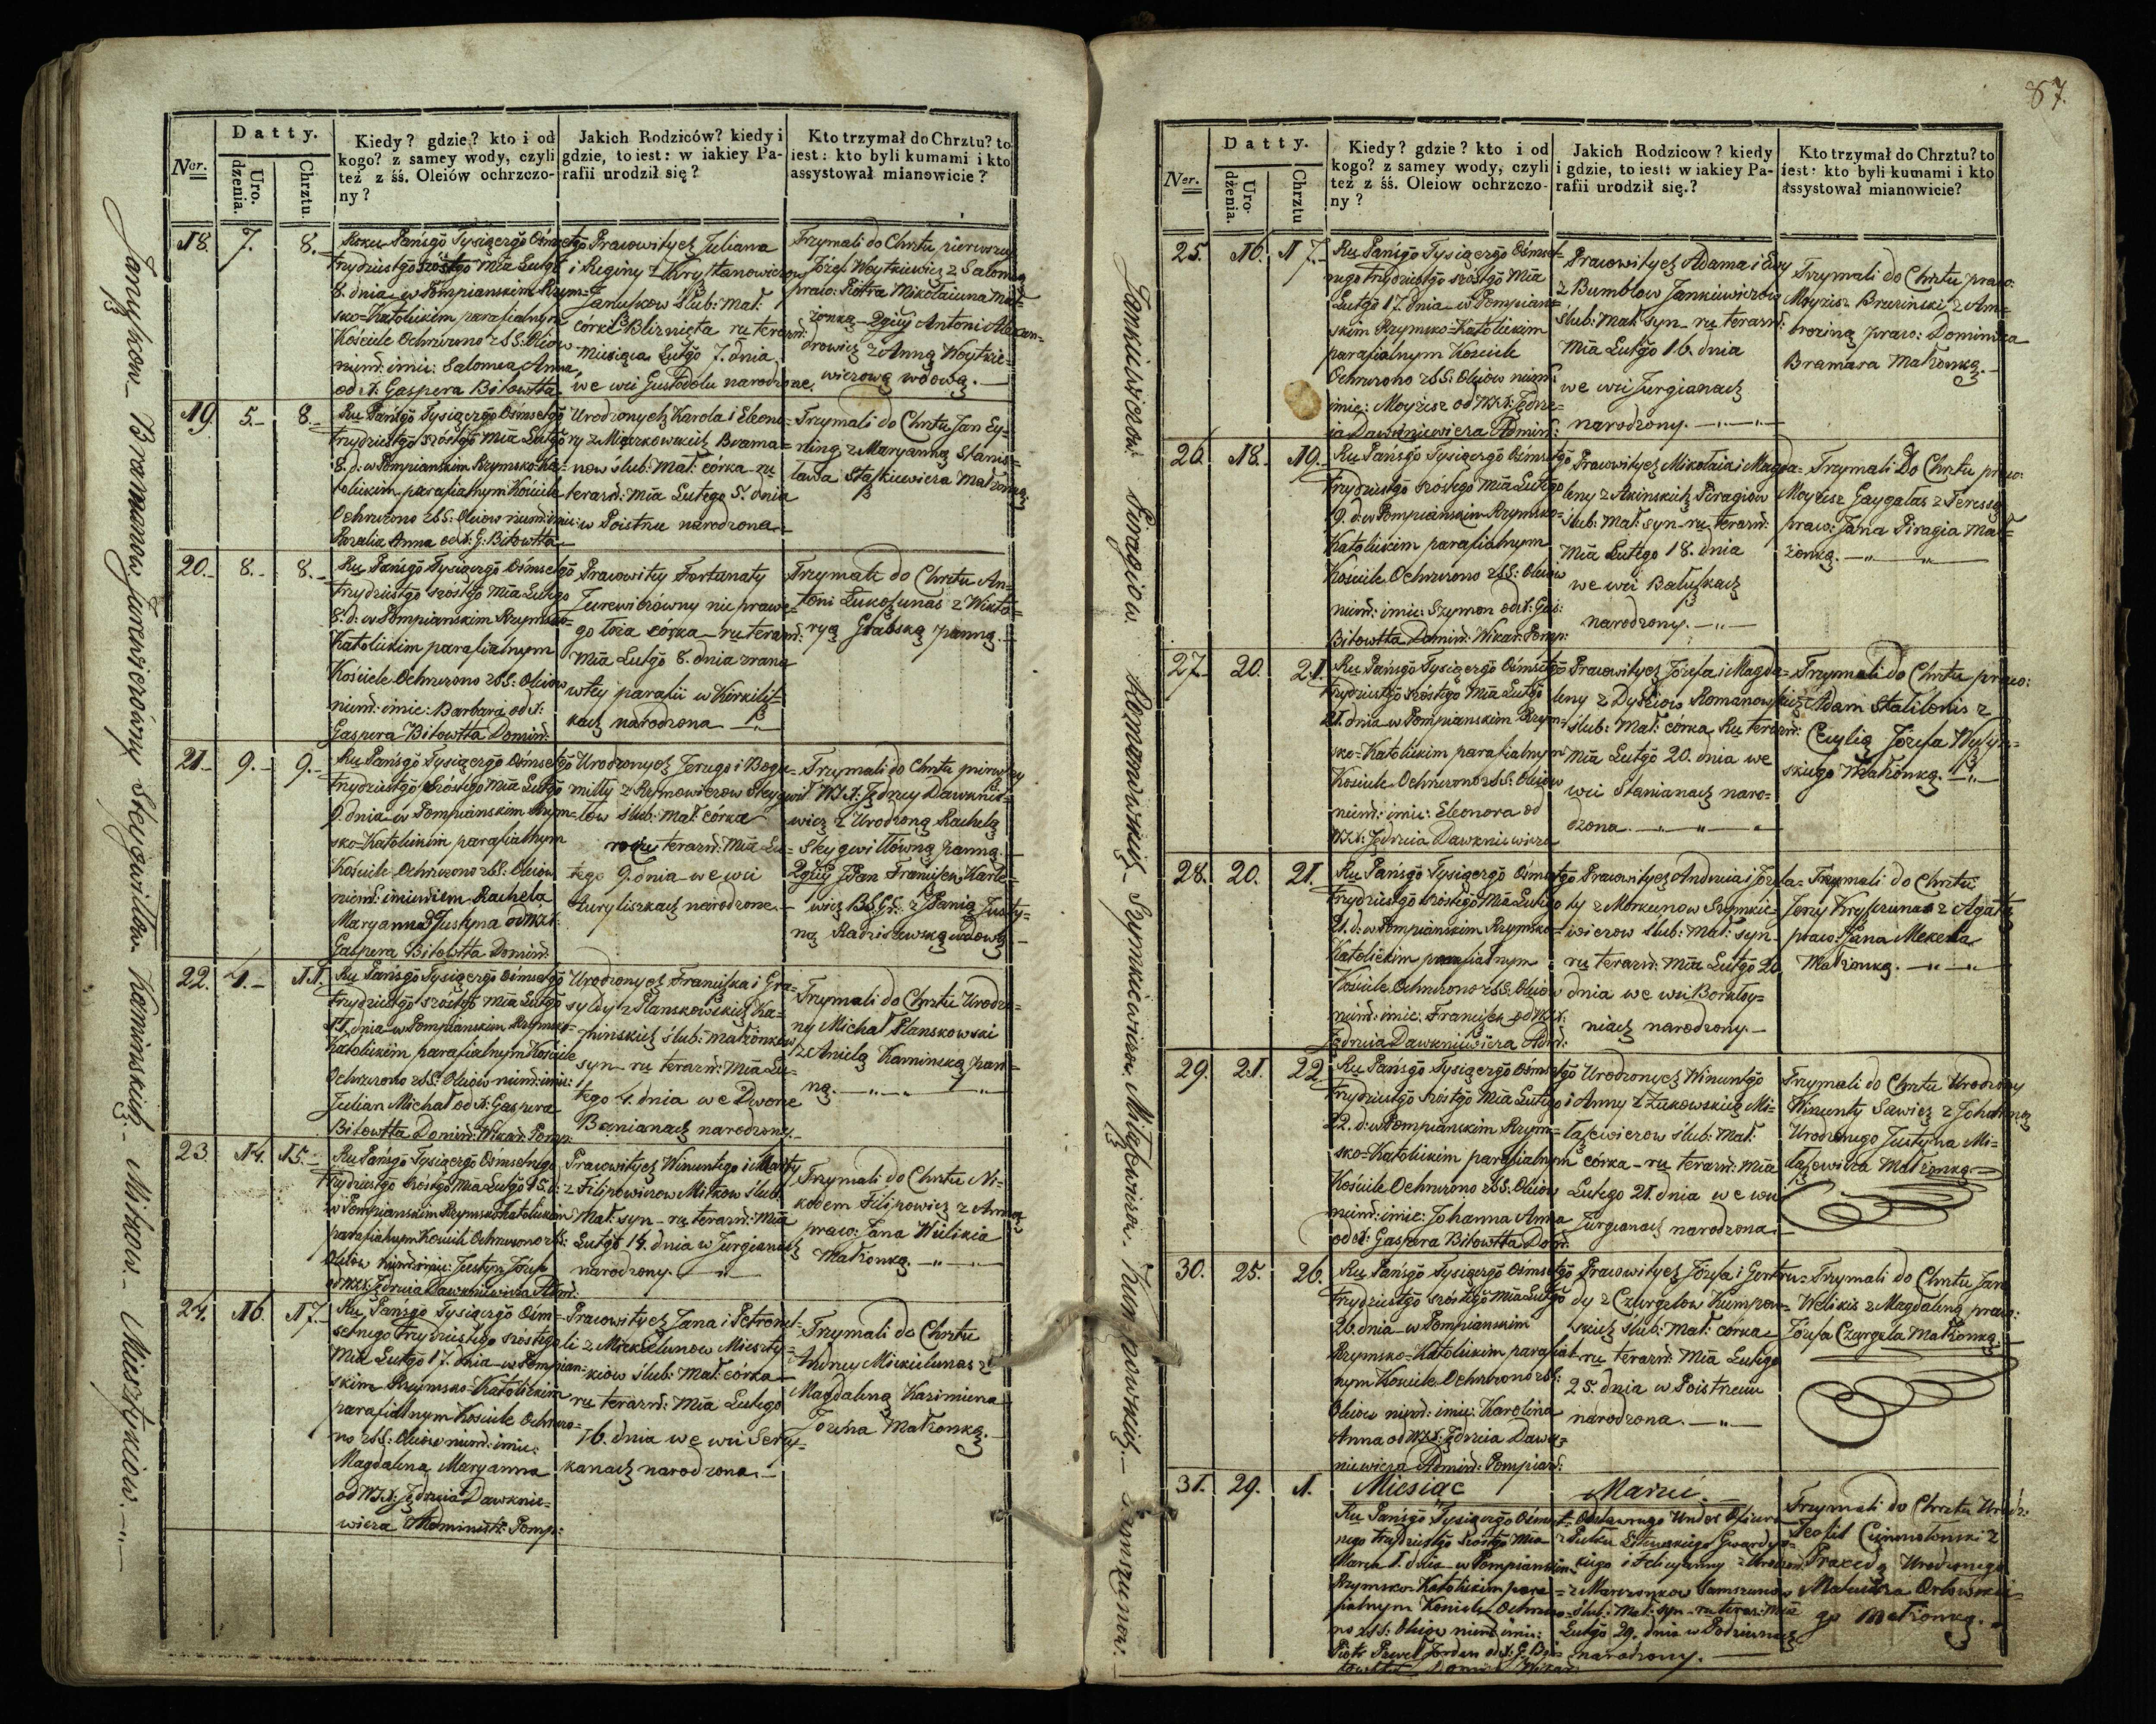 87.
Datty.
Ner.
Uro.
dzenia.
Chrztu.
Kiedy? gdzie? kto i od
kogo? z samey wody, czyli
też z śś. Oleiów ochrzczo-
ny?
Jakich Rodziców? kiedy i
gdzie, to iest: w iakiey Pa-
rafii urodził się?
Kto trzymał do Chrztu? to
iest: kto byli kumami i kto
assystował mianowicie?
18. 7. 8.
Roku Pańsgō Tysiącgō Ośmsetgō
trzydziestgō szóstgō Mīa Lutgō
8. dnia w Pompianskim Rzym=
sko-Katolickim parafialnym
Kościele Ochrzczono z SS: Oleiow
niemd: imie: Salomea Anna
od X. Gaspera Bitowtta
Pracowitych Juliana
i Reginy z Krysztanowiczow
Januszkow Ślub: Mał:
córki Bliznięta ru terazn:
Miesiąca Lutgō 7. dnia
we wsi Gustodolu narodzone.
Trzymali do Chrztu pierwszą
Józef Woytkiewicz z Salomeą
praco: Piotra Mikołaiuna Mał=
żonką 2gięy Antoni Alexan-
drowicz z Anną Woytkie=
wiczową wdową.
19. 5. 8.
Ru Pańsgō Tysiącgō Ośmsetgō
trzydziestgō szóstgō Mīa Lutgō
8. d: w Pompianskim Rzymsko-Ka=
tolickim parafialnym Kościele
Ochrzczono z SS: Oleiow niemd: imie:
Rozalia Anna od X: G: Bitowtta
Urodzonych Karola i Eleono=
ry z Brama=
now ślub: Mał: córka ru
terazn: Mīa Lutego 5. dnia
w Poistrzu narodzona
Trzymali do Chrztu Jan Ey=
z Maryanną Stanis=
ława Staszkiewicza Małżonką.
20. 8. 8.
Ru Pańsgō Tysiącgō Ośmsetgō
trzydziestgō szóstgō Mīa Lutgo
8. d: w Pompianskim Rzymsko=
Katolickim parafialnym
Kościele Ochrzczono z SS: Oleiow
niemd: imie: Barbara od X:
Gaspera Bitowtta Domin:
Pracowitey Fortunaty
Jurewiczówny nie prawe=
go łoża córka ru terazn:
Mīa Lutgō 8. dnia zrana
w tey parafii w Kirkilisz=
kach narodzona
Trzymali do Chrztu An=
toni Łukoszunas z Wikto=
ryą Grabską panną.
21. 9. 9.
Ru Pańsgō Tysiącgō Ośmsetgō
trzydziestgō szóstego Mīa Lutgō
9. dnia w Pompianskim Rzym=
sko-Katolickim parafialnym
Kościele Ochrzczono z SS: Oleiow
niemd: imieniem Rachela
Maryanna Justyna od WX:
Gaspera Bitowtta Domin:
Urodzonych Jerzego i Bogu=
miłły z Rymowiczow Skygwił=
łow ślub: Mał: córka
roku terazn: Mīa Lu=
tego 9. dnia we wsi
Auryliszkach narodzone.
Trzymali do Chrztu pierwszy
WJX: Jędrzey Dawknie=
wicz z Urodzoną Rachelą
Skygwiłłówną panną.
2gięy JPan Franciszek Karlo=
wicz z JPanią Justy=
ną Radziszewską wdową.
22. 4. 11.
Ru Pańsgō Tysiącgō Ośmsetgō
trzydziestgō szóstgō Mīa Lutgō
11. dnia w Pompianskim Rzymsko=
Katolickim parafialnym Kościele
Ochrzczono z SS: Oleiow niemd: imie:
Julian Michał od X: Gaspera
Bitowtta Domin: Wikar: Pomp:
Urodzonych Franciszka i Gra=
syldy z Planskowskich Ka=
minskich ślub: Małżonkow
syn ru terazn: Mīa Lu=
tego 4. dnia we Dworze
narodzony.
Trzymali do Chrztu Urodzo=
ny Michał Planskowski
z Anielą Kaminską pan=
ną.
23. 14. 15.
Ru Pańsgō Tysiącgō Ośmsetnego
trzydziestgō szóstgō Mīa Lutgō 15. d:
w Pompianskim Rzymsko-Katolickim
parafialnym Kościele Ochrzczono z SS:
Oleiow niemd: imie: Justyn Józef
od WXX: Jędrzeia Dawkniewicza Adm:
Pracowitych Wincentego i Marty
z Filipowiczow Mitkow ślub:
Mał: syn ru terazn: Mīa
Lutgō 14. dnia w Jurgianach
narodzony.
Trzymali do Chrztu Ni=
kodem Filipowicz z Anną
praco: Jana Wielikia
Małżonką.
24. 16. 17.
Ru Pańsgō Tysiącgō Ośm=
setnego trzydziestego szóstego
Mīa Lutgō 17. dnia w Pompian=
skim Rzymsko-Katolickim
parafialnym Kościele Ochrzczo=
no z SS: Oleiow niemd: imie:
Magdalena Maryanna
od WJX: Jędrzeia Dawknie=
wicza Administr: Pomp:
Pracowitych Jana i Petronel=
li z Mickelunow Miesztyn=
kiow ślub: Mał: córka
ru terazn: Mīa Lutego
16. dnia we wsi
narodzona.
Trzymali do Chrztu
Andrzey Mickielunas z
Magdaleną Kazimierza
Małżonką.
Januszkow Bramanow Jurewiczówny Skygwiłłow Kaminskich Mitkow Miesztynkiow.
Datty.
Ner.
Uro-
dzenia.
Chrztu
Kiedy? gdzie? kto i od
kogo? z samey wody, czyli
też z śś. Oleiow ochrzczo-
ny?
Jakich Rodzicow? kiedy
i gdzie, to iest: w iakiey Pa-
rafii urodził się.?
Kto trzymał do Chrztu? to
iest: kto byli kumami i kto
assystował mianowicie?
25. 16. 17.
Ru Pańsgō Tysiącgō Ośmset=
nego trzydziestgō szóstgō Mīa
Lutgō 17. dnia w Pompian=
skim Rzymsko-Katolickim
parafialnym Kościele
Ochrzczono z SS: Oleiow niemd:
imie: Moyżesz od WXX: Jędrze=
ia Dawkniewicza Admin:
Pracowitych Adama i Ewy
z Bumblow Jankiewiczow
ślub: Mał: syn ru terazn:
Mīa Lutgō 16. dnia
we wsi Jurgianach
narodzony.
Trzymali do Chrztu praco:
Moyżesz z Am=
brozyną praco: Dominika
Bramara Małżonką.
26. 18. 19.
Ru Pańsgō Tysiącgō Ośmsetgō
trzydziestgō szóstego Mīa Lutego
19. d: w Pompianskim Rzymsko=
Katolickim parafialnym
Kościele Ochrzczono z SS: Oleiow
niemd: imie: Szymon od X: Gas:
Bitowtta Domin: Wikar: Pomp:
Pracowitych Mikołaia i Magda=
leny z Akinskich Piragiow
ślub: Mał: syn ru terazn:
Mīa Lutego 18. dnia
we wsi Bałuszkach
narodzony.
Trzymali Do Chrztu praco:
Moyżesz Gaygałas z Teressą
praco: Jana Piragia Mał=
żonką.
27. 20. 21.
Ru Pańsgō Tysiącgō Ośmsetgō
trzydziestgō szóstgō Mīa Lutgō
21. dnia w Pompianskim Rzym=
sko-Katolickim parafialnym
Kościele Ochrzczono z SS: Oleiow
niemd: imie: Eleonora od
WXX: Jędrzeia Dawkniewicza
Pracowitych Józefa i Magda=
leny z Romanowskich
ślub: Mał: córka Ru terazn:
Mīa Lutgō 20. dnia we
wsi Stanianach naro=
dzona.
Trzymali do Chrztu praco:
Adam Stalilonis z
Cecylią Józefa
skiego Małżonką.
28. 20. 21.
Ru Pańsgō Tysiącgō Ośmsetgō
trzydziestgō szóstgō Mīa Lutego
21. d: w Pompianskim Rzymsko=
Katolickim parafialnym
Kościele Ochrzczono z SS: Oleiow
niemd: imie: Franciszek od WJX:
Jędrzeia Dawkniewicza Adm:
Pracowitych Andrzeia i Józefa=
ty z Morkunow Szymkie=
wiczow ślub: Mał: syn
ru terazn: Mīa Lutgō 20
dnia we wsi
niach narodzony.
Trzymali do Chrztu
Jerzy Kryszunas z Agatą
praco: Jana Mekela
Małżonką.
29. 21. 22.
Ru Pańsgō Tysiącgō Ośmsetgō
trzydziestgō szóstgō Mīa Lutego
22. d: w Pompianskim Rzym=
sko-Katolickim parafialnym
Kościele Ochrzczono z SS: Oleiow
niemd: imie: Johanna Anna
od X: Gaspera Bitowtta Dom:
Urodzonych Wincentgō
i Anny z Żukowskich Mi=
taszewiczow ślub: Mał:
córka ru terazn: Mīa
Lutego 21. dnia we wsi
Jurgianach narodzona
Trzymali do Chrztu Urodzony
Wincenty Sawicz z Johanną
Urodzonego Justyna Mi=
taszewicza Małżonką
30. 25. 26.
Ru Pańsgō Tysiącgō Ośmsetgō
trzydziestgō szóstegō Mīa Lutgō
26. dnia w Pompianskim
Rzymsko-Katolickim parafial=
nym Kościele Ochrzczono z SS:
Oleiow niemd: imie: Karolina
Anna od WXX: Jędrzeia Dawk=
niewicza Admin: Pompian:
Pracowitych Józefa i Gertru=
dy z Czurgelow Kumpow=
skich ślub: Mał: córka
ru terazn: Mīa Lutego
25. dnia w Poistrzeniu
narodzona.
Trzymali do Chrztu Jan
Welikis z Magdaleną praco:
Józefa Czurgela Małżonką.
31. 29. 1.
Miesiąc Marzec.
Ru Pańsgō Tysiącgō Ośmset=
nego trzydziestgō szóstgō Mīa
Marca 1. dnia w Pompianskim
Rzymsko-Katolickim para=
fialnym Kościele Ochrzczo=
no z SS: Oleiow niemd: imie:
Piotr Paweł Jordan od X: G: Bi=
towtta Domin: Wikar:
Odstawnego Under Oficera
z Pułku Litewskiego Gwardyi=
skiego i Felicyanny z Urodzon:
z Samszunow
ślub: Mał: syn ru teraz: Mīa
Lutgō 29. dnia w
narodzony.
Trzymali do Chrztu Urodz:
Teofil z
Praxedą Urodzonego
Mateusza Orłowskie=
go Małżonką.
Jankiewiczow Piragiow Romanowskich Szymkiewiczow Mitaszewiczow Kumpowskich Samszunow.